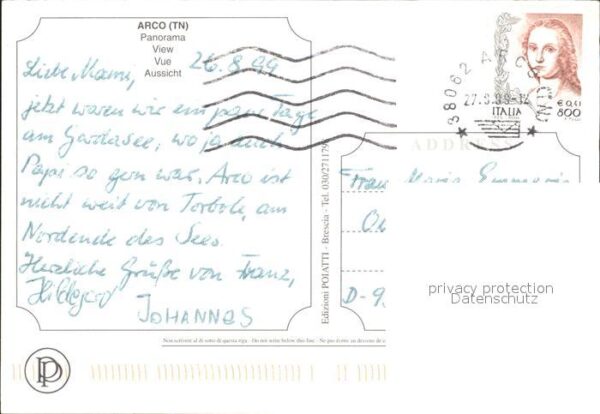 ARCO (TN)
Panorama
View
Vue
Aussicht
26.8.99
Liebe Mama,
jetzt waren wir ein paar Tage
am Gardasee, wo ja auch
Papa so gern war. Arco ist
nicht weit von Torbole, am
Nordende des Sees.
Herzliche Grüße von Franz,
Hildegard
JOHANNES
Edizioni POIATTI - Brescia - Tel. 030/271179
38062 ARCO (TN)
27.8.99
€ 0,41
ITALIA 800
ADDRESS
Frau Maria
D-9
privacy protection
Datenschutz
Non scrivere al di sotto di questa riga - Do not write below this line - Ne pas écrire au dessous de
PP